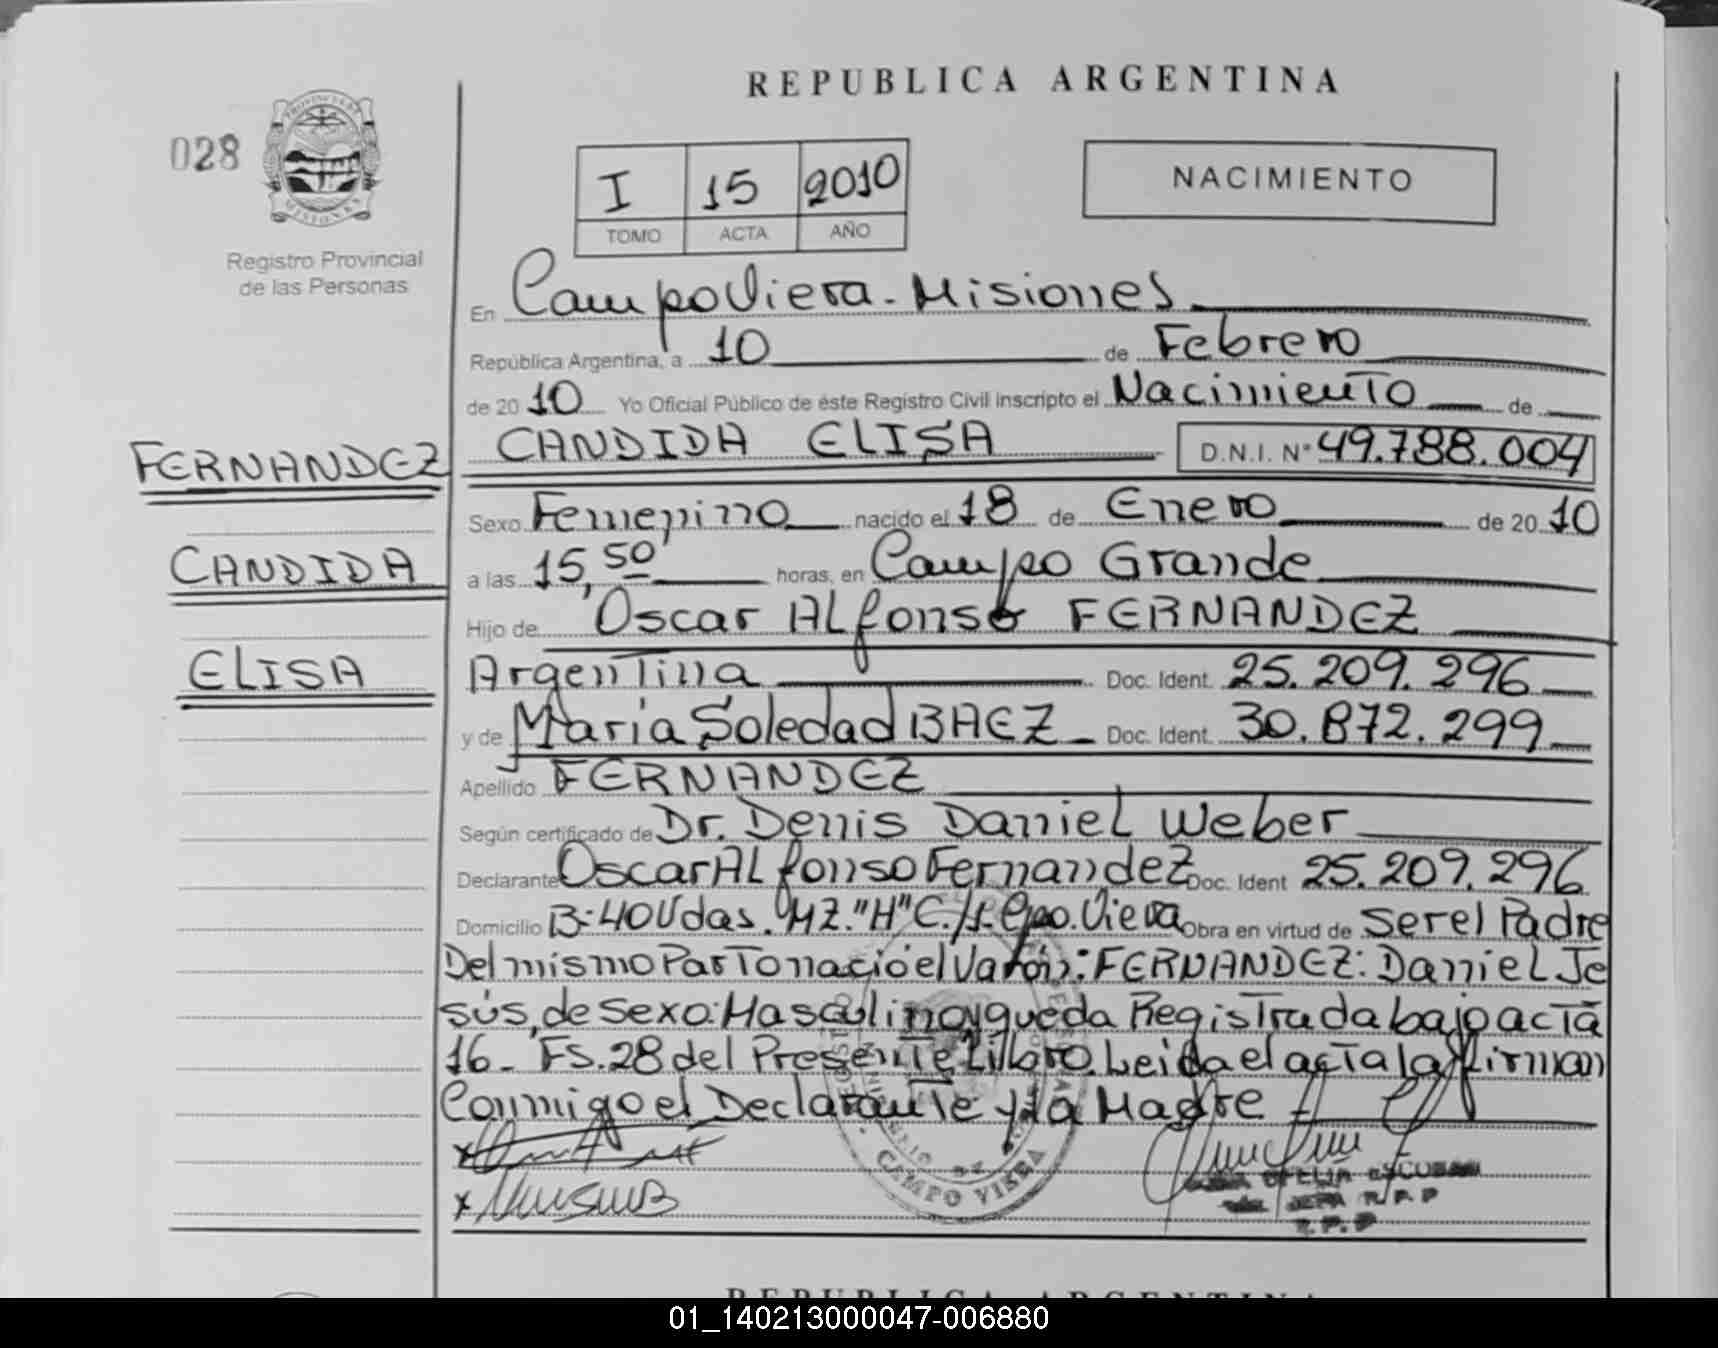 REPUBLICA ARGENTINA
028
PROVINCIA DE
MISIONES
Registro Provincial
de las Personas
I 15 2010
TOMO ACTA AÑO
NACIMIENTO
En Campo Viera - Misiones
República Argentina, a 10 de Febrero
de 20 10 Yo Oficial Público de éste Registro Civil inscripto el Nacimiento de
FERNANDEZ CANDIDA ELISA D.N.I. Nº 49.788.004
Sexo Femenino nacido el 18 de Enero de 20 10
CANDIDA
a las 15,50 horas, en Campo Grande
Hijo de Oscar ALfonso FERNANDEZ
ELISA
Argentina Doc. Ident. 25.209.296
y de Maria Soledad BAEZ Doc. Ident. 30.872.299
Apellido FERNANDEZ
Según certificado de Dr. Denis Daniel Weber
Declarante Oscar ALfonso Fernandez Doc. Ident 25.209.296
Domicilio B:40Vdas. MZ."H" C./1. Cpo. Viera Obra en virtud de ser el Padre
Del mismo Parto nació el Varón: FERNANDEZ: Daniel Je
sús, de sexo: Masculino, y queda Registrada bajo acta
16 - Fs. 28 del Presente Libro. Leida el acta la firman
Conmigo el Declarante y la Madre
CAMPO VIERA
OFELIA ESCOBAR
JEFA R.P.P
R.P.P
REPUBLICA ARGENTINA
01_140213000047-006880